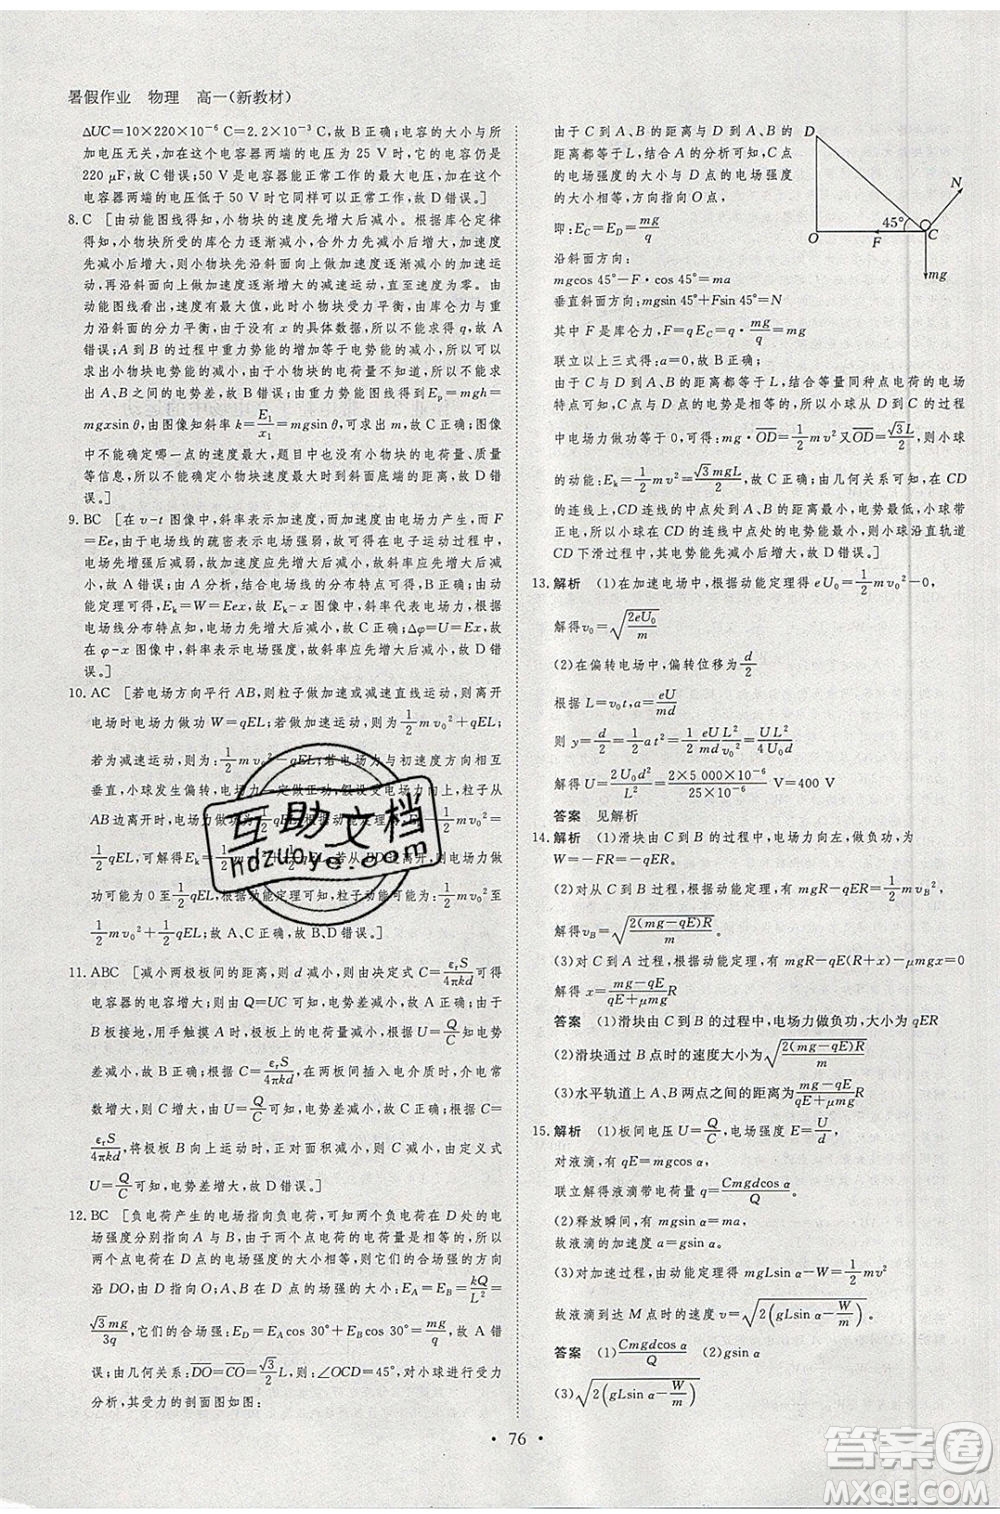 暑假作业 物理 高一(新教材)
ΔUC=10×220×10⁻⁶ C=2.2×10⁻³ C,故B正确;电容的大小与所
加电压无关,故当这个电容器两端的电压为25 V时,它的电容仍是
220 μF,故C错误;50 V是电容器能正常工作的最大电压,所以这个
电容器两端的电压为50 V时它同样可以正常工作,故D错误。]
8.C [由动能图线得知,小物块的速度先增大后减小。根据库仑定律
得知,小物块所受的库仑力逐渐减小,合外力先减小后增大,加速度
先减小后增大,则小物块沿斜面向上做加速度逐渐减小的加速运
动,再沿斜面向上做加速度逐渐增大的减速运动,故A错误;由
动能图线看出,速度有最大值,此时小物块受力平衡,则库仑力与重
力沿斜面的分力平衡,由于没有x的具体数据,所以不能求得q,故B错
误;A到B的过程中重力势能的增加等于电势能的减小,可以求出
A、B之间的电势差,故
误;由于小物块的电荷量不知道,所以不能求出
由重力势能线得到E
p
=mgh=
mgxsin θ,由图像知斜率=E₁/x₁=mgsin θ,由图像可求出m,故C正确;图像中不
能正确确定哪一点的速度最大,题目中只有小物块的电荷量、质量、
斜面的倾角,无法确定小物块上升到时到斜面底端的距离,故D错
误。]
9.BC [在v-t图像中,斜率表示加速度,而加速度由电场力产生,而F
=Ee,由于电场线的疏密表示电场强弱,所以在电子运动过程中,
速度应先增强后减弱,故A错误;由A分析,结合电场线的分布特点可得,B正确;
由动能定理可得,Eₖ=W=Eex,故Eₖ-x图像,斜率代表电场力,根据
电场线分布特点可知,电场力先增大后减小,故C正确;Δφ=U=Ex,
故φ-x图像中,斜率表示电场强度,故斜率应先增大后减小,故D错
误。]
10.AC [若电场方向平行AC,则粒子做加速或减速直线运动,则离开
电场时电场力做功W=qEL;若做加速运动,则Eₖ=1/2 mv₀²+qEL;若
为减速运动,则Eₖ=1/2 mv₀²-qEL;
垂直,小球发生偏转,电场力一定做正功,
ABCD离开,则Eₖ=1/2 mv₀²+1/2 qEL
可能为0至1/2 qEL
1/2 mv₀²至1/2 mv₀²+1/2 qEL。故A、C正确,故B、D错误。]
11.ABC [减小两极板间的距离,则d减小,由决定式C=εᵣS/4πkd可得
电容器的电容增大;则由Q=UC可知,电势差减小,故A正确;由于
B板接地,用手触摸A板时,A板上的电荷量减小,由U=Q/C可知电势差
减小,故B正确;由C=εᵣS/4πkd可知,两板间插入电介质时,介电常
数变大,则C增大,由U=Q/C可知,电势差减小,故C正确;由C=
εᵣS/4πkd可知,将A板向上运动时,正对面积S减小,电容减小,由定义式
U=Q/C可知,电势差增大,故D错误。]
12.BC [负电荷产生的电场指向负电荷,可知两个负电荷在D处的电
场强度分别指向A与B,由于两个点电荷的电荷量是相等的,所以
两个点电荷在D点的电场强度的大小相等,则它们的合场强的方向
沿DO,由D指向O;A、B在D点的场强的大小:E_A=E_B=kQ/L²=
√3mg/3q,它们的合场强:E_D=E_Acos 30°+E_Bcos 30°=mg/q,故A错
误;由几何关系:DO=CO=√3/2 L,∠OCD=45°,对小球进行受力
分析,其受力的剖面图如图:
由于C到A、B的距离与D到A、B的
距离都等于L,结合A的分析可知,C点
的电场强度的大小与D点的电场强度
的大小相等,方向指向O点
即:E_C=E_D=mg/q
D
O
45°
F
C
N
mg
沿斜面方向:
mgcos 45°-F·cos 45°=ma
垂直斜面方向:mgsin 45°+Fsin 45°=N
其中F是库仑力,F=qE_C=q·mg/q
联立以上三式得:a=0,故B正确;
由于C与D到A、B的距离都等于L,结合等量同种点电荷的电场
特点可知,C点与D点的电势相等,所以小球从D到C的过程
中电场力做功等于0,可得:mg·OD=1/2 mv²又OD=√3L/2,所以小球
的动能:Eₖ=1/2 mv²=√3mgL/2,故C正确;由几何关系可知,在CD
的连线上,CD的连线的中点处到A、B的距离最短,电势最小,小球带
正电,所以小球在CD的连线中点处的电势能最小,则小球沿直轨道
CD下滑过程中,其电势能先减小后增大,故D错误。]
13.解析 (1)在加速电场中,根据动能定理得eU₀=1/2 mv₀²-0,
解得v₀=√(2eU₀/m)
(2)在偏转电场中,偏转位移为d/2
根据L=v₀t,a=eU/md
则y=d/2=1/2 at²=1/4 eUL²/mdv₀²=UL²/4U₀d
解得U=2U₀d²/L²=2×5 000×10⁻⁶/25×10⁻⁴ V=400 V
答案 见解析
14.解析 (1)滑块由C到B的过程中,电场力向左,做负功,为
W=-FR=-qER。
(2)对从C到B过程,根据动能定理,有mgR-qER=1/2 mv_B²
解得v_B=√(2(mg-qE)R/m)。
(3)对从C到A过程,根据动能定理,有mgR-qE(R+x)-μmgx=0
解得x=mg-qE/qE+μmg R
答案 (1)滑块由C到B的过程中,电场力做负功,大小为qER
(2)滑块通过B点时的速度大小为√(2(mg-qE)R/m)
(3)水平轨道上A、B两点之间的距离为mg-qE/qE+μmg R
15.解析 (1)板间电压U=Q/C,电场强度E=U/d,
对液滴,有qE=mgcos α,
联立解得液滴带电荷量q=Cmgdcos α/Q。
(2)释放瞬间,有mgsin α=ma,
故液滴的加速度a=gsin α。
(3)对加速过程,由动能定理,有mgLsin α-W=1/2 mv²
故液滴到达M点时的速度v=√(2(gLsin α-W/m))
答案 (1)Cmgdcos α/Q (2)gsin α
(3)√(2(gLsin α-W/m))
• 76 •
互助文档
hdzuoye.com
答案圈
MXQE.COM